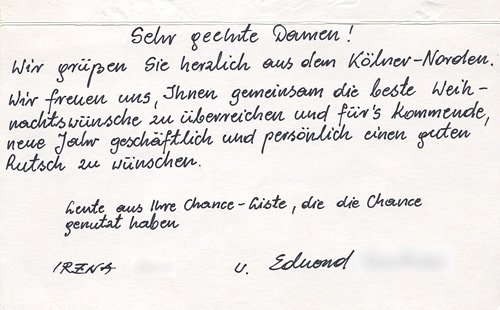 Sehr geehrte Damen!
Wir grüßen Sie herzlich aus dem Kölner-Norden.
Wir freuen uns, Ihnen gemeinsam die beste Weih-
nachtswünsche zu überreichen und für's kommende,
neue Jahr geschäftlich und persönlich einen guten
Rutsch zu wünschen.
Leute aus Ihre Chance-Liste, die die Chance
genutzt haben
IRENA u. Edmond